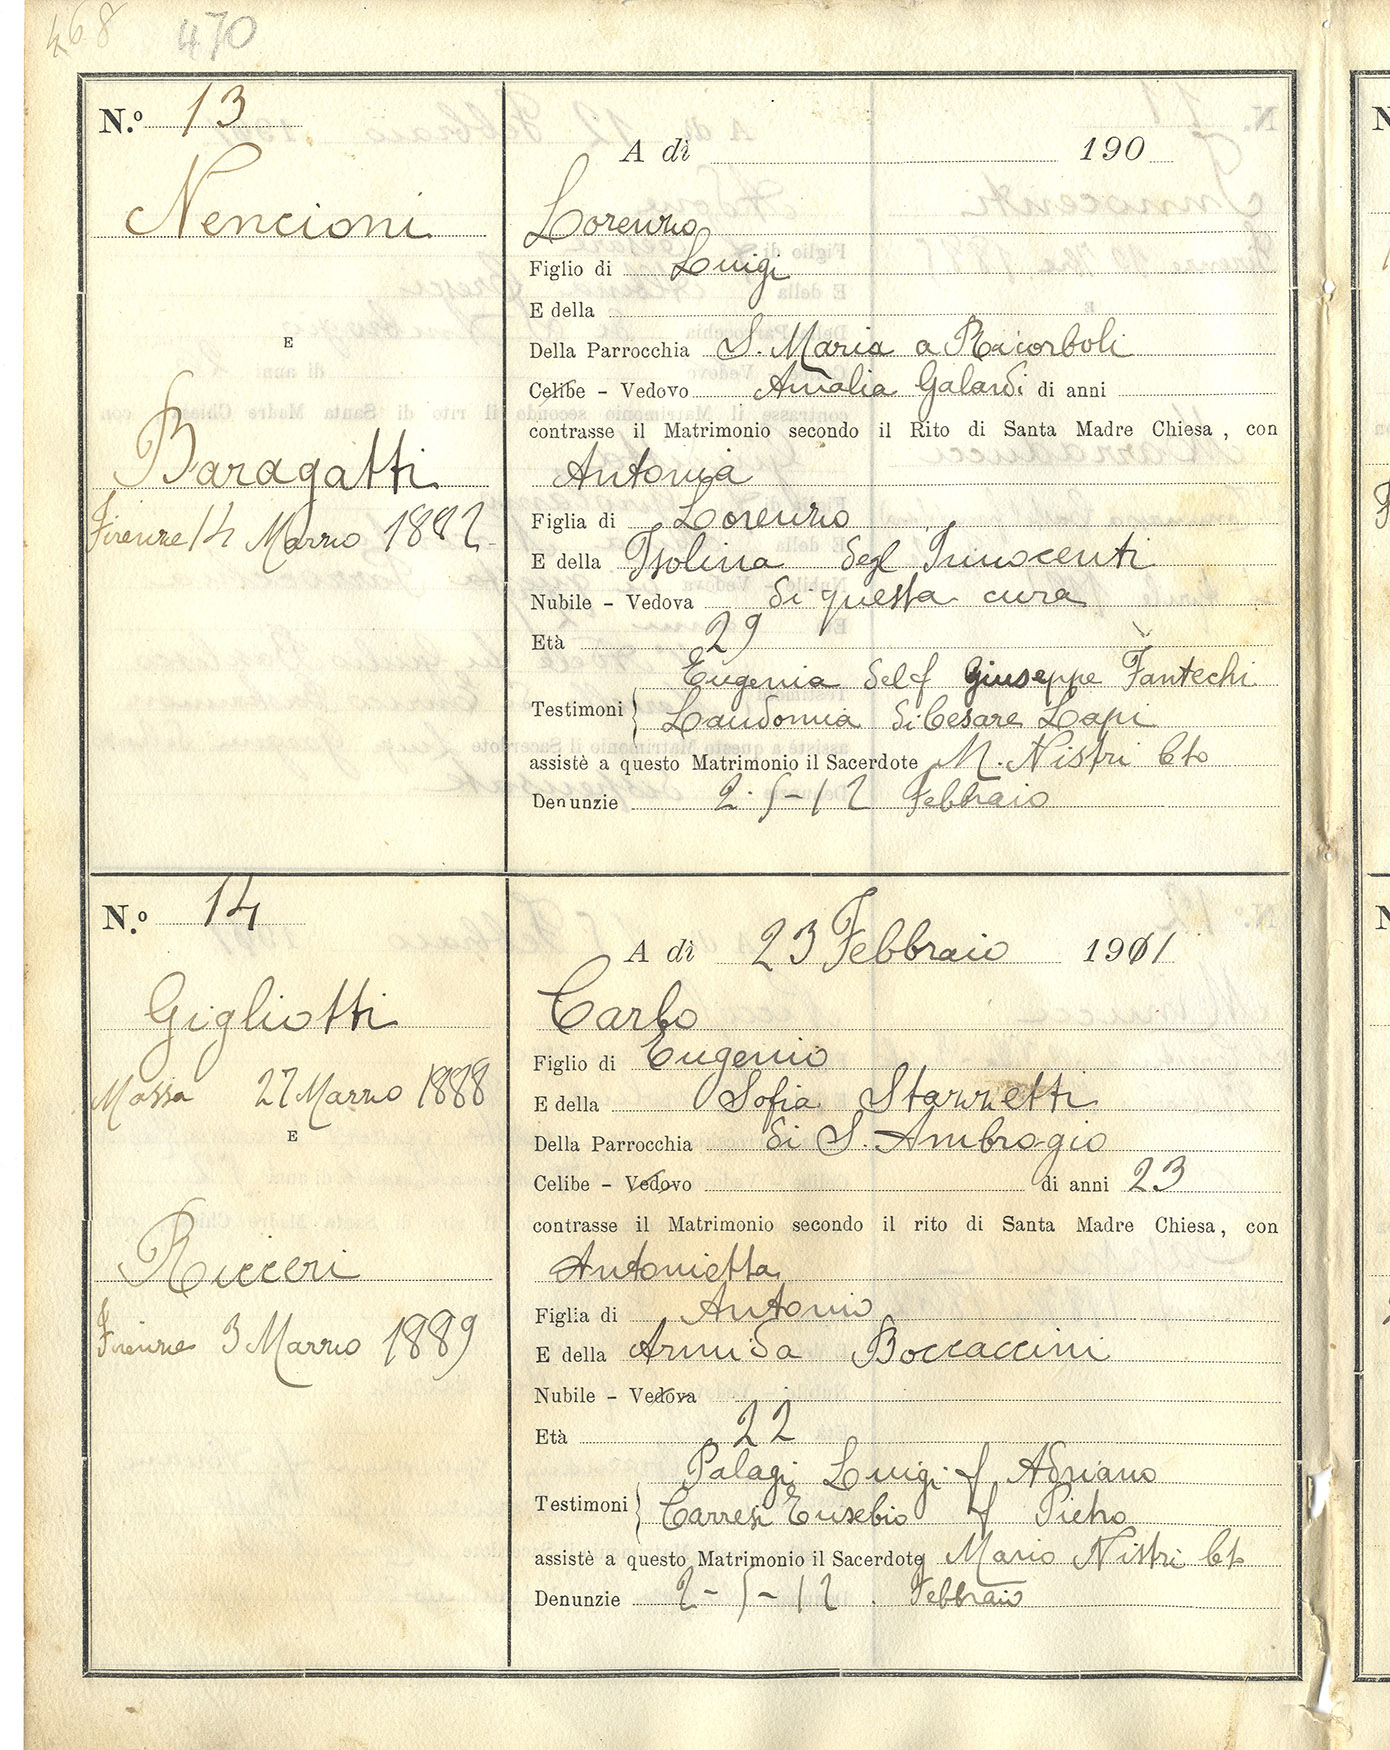 468 470
N.º 13
Nencioni
E
Baragatti
Firenze 14 Marzo 1882
A dì 190
Lorenzo
Figlio di Luigi
E della
Della Parrocchia S. Maria a Ricorboli
Celibe - Vedovo Amalia Galardi di anni
contrasse il Matrimonio secondo il Rito di Santa Madre Chiesa, con
Antonia
Figlia di Lorenzo
E della Isolina degl Innocenti
Nubile - Vedova di questa cura
Età 29
Eugenia del f Giuseppe Fantechi
Testimoni Laudomia di Cesare Lapi
assistè a questo Matrimonio il Sacerdote M. Nistri Cto
Denunzie 2-5-12 Febbraio
N.º 14
Gigliotti
Massa 27 Marzo 1888
E
Ricceri
Firenze 3 Marzo 1889
A dì 23 Febbraio 1911
Carlo
Figlio di Eugenio
E della Sofia Starzetti
Della Parrocchia di S. Ambrogio
Celibe - Vedovo di anni 23
contrasse il Matrimonio secondo il rito di Santa Madre Chiesa, con
Antonietta
Figlia di Antonio
E della Armida Boccaccini
Nubile - Vedova
Età 22
Palagi Luigi f Adriano
Testimoni Carresi Eusebio f Pietro
assistè a questo Matrimonio il Sacerdote Mario Nistri Cto
Denunzie 2-5-12 Febbraio